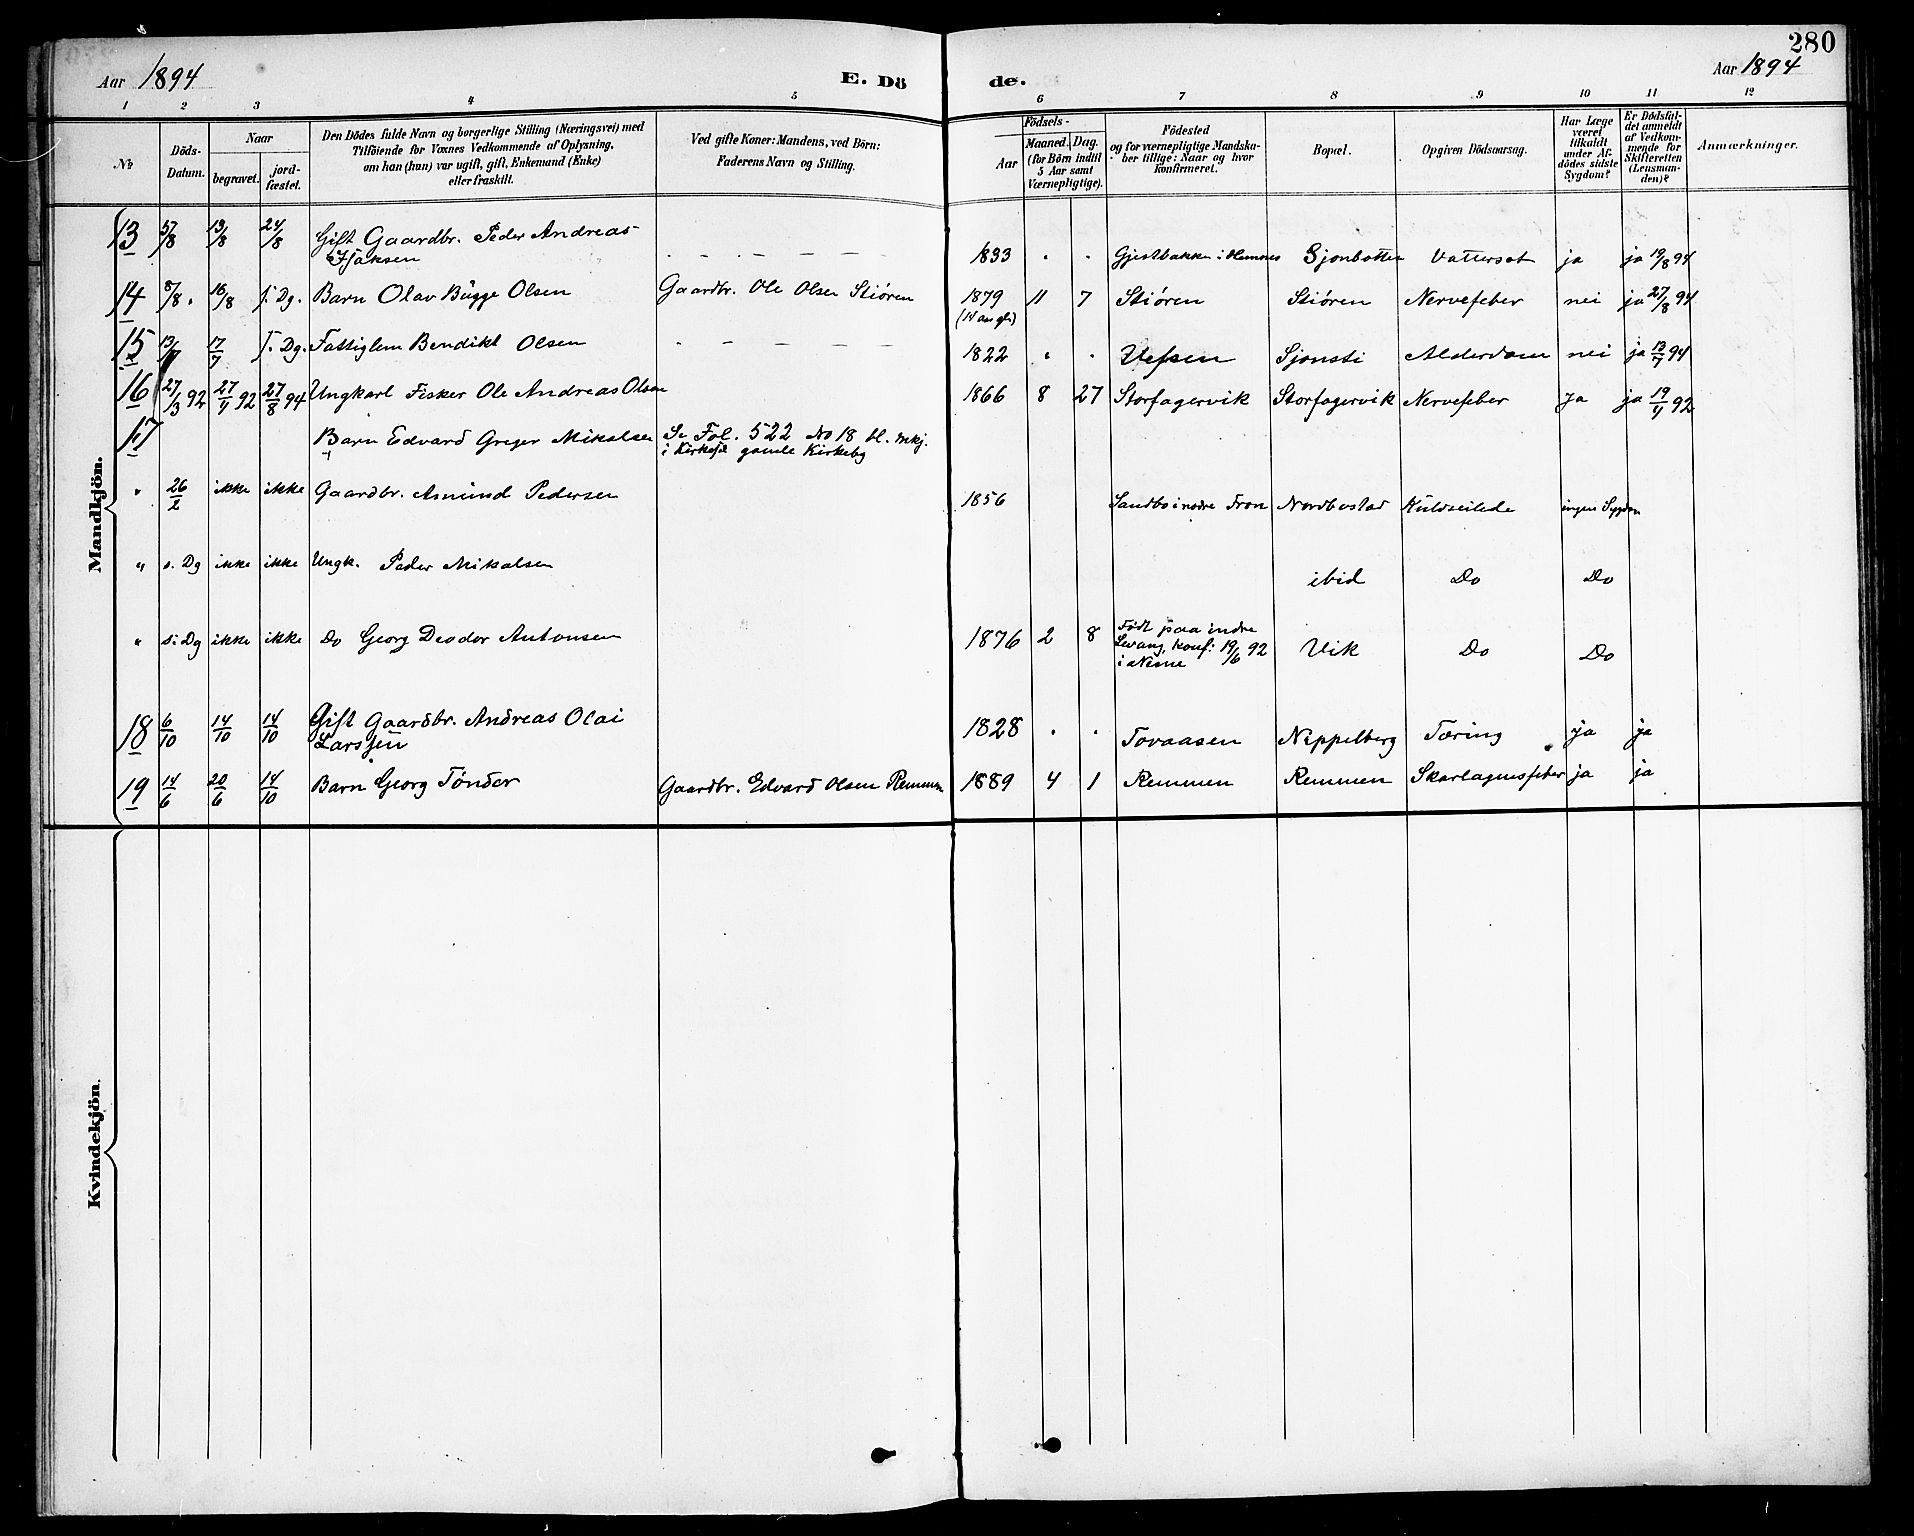 280
Aar 1894 E. Dö de. Aar 1894
1 2 3 4 5 6 7 8 9 10 11 12
No
Döds-Datum.
Naar
begravet.
jord-fæstet.
Den Dödes fulde Navn og borgerlige Stilling (Næringsvei) med
Tilföiende for Voxnes Vedkommende af Oplysning,
om han (hun) var ugift, gift, Enkemand (Enke)
eller fraskilt.
Ved gifte Koner: Mandens, ved Börn:
Faderens Navn og Stilling.
Födsels-
Aar
Maaned. Dag.
(for Börn indtil
5 Aar samt
Værnepligtige).
Födested
og for værnepligtige Mandska-
ber tillige: Naar og hvor
konfirmeret.
Bopæl.
Opgiven Dödsaarsag.
Har Læge
været
tilkaldt
under Af-
dödes sidste
Sygdom?
Er Dödsfal-
det anmeldt
af Vedkom-
mende for
Skifteretten
(Lensman-
den)?
Anmærkninger.
Mandkjön.
13 5/8 13/8 24/8 Gift Gaardbr. Peder Andreas
Isaksen - - - - - - 1833 " " Gjestbakken i Hemnes Sjonbotten Vattersot ja ja 19/8 94
14 8/8 16/8 s. Dg. Barn Olav Bügge Olsen Gaardbr. Ole Olsen Stiøren 1879 11 7 Stiøren Stiøren Nervefeber nei ja 27/8 94
(14 aar gl:)
15 13/7 17/7 s. Dg. Fattiglem Bendikt Olsen - - - - - 1822 " " Vefsen Sjonsti Alderdom nei ja 13/7 94
16 27/3 92 27/4 92 27/8 94 Ungkarl Fisker Ole Andreas Olsen 1866 8 27 Storfagervik Storfagervik Nervefeber ja ja 19/4 92
17 Barn Edvard Greger Mikalsen Se Fol. 522 No 18 bl. mkj.
i gamle Kirkebg
" 26/2 ikke ikke Gaardbr. Amund Pedersen 1856 Sandbo i nordre Fron Nordbostad Kuldseilede ingen Sygdom
" s. Dg ikke ikke Ungk. Peder Mikalsen ibid Do Do
" s: Dg ikke ikke Do Georg Deodor Antonsen 1876 2 8 Født paa indre
Levang, konf: 19/6 92
i Nesne Vik Do Do
18 6/10 14/10 14/10 Gift Gaardbr. Andreas Olai
Larssen 1828 " " Tovaasen Nippelberg Tæring ja ja
19 14/6 20/6 14/10 Barn Georg Tønder Gaardbr. Edvard Olsen Remmen 1889 4 1 Remmen Remmen Skarlagensfeber ja ja
Kvindekjön.